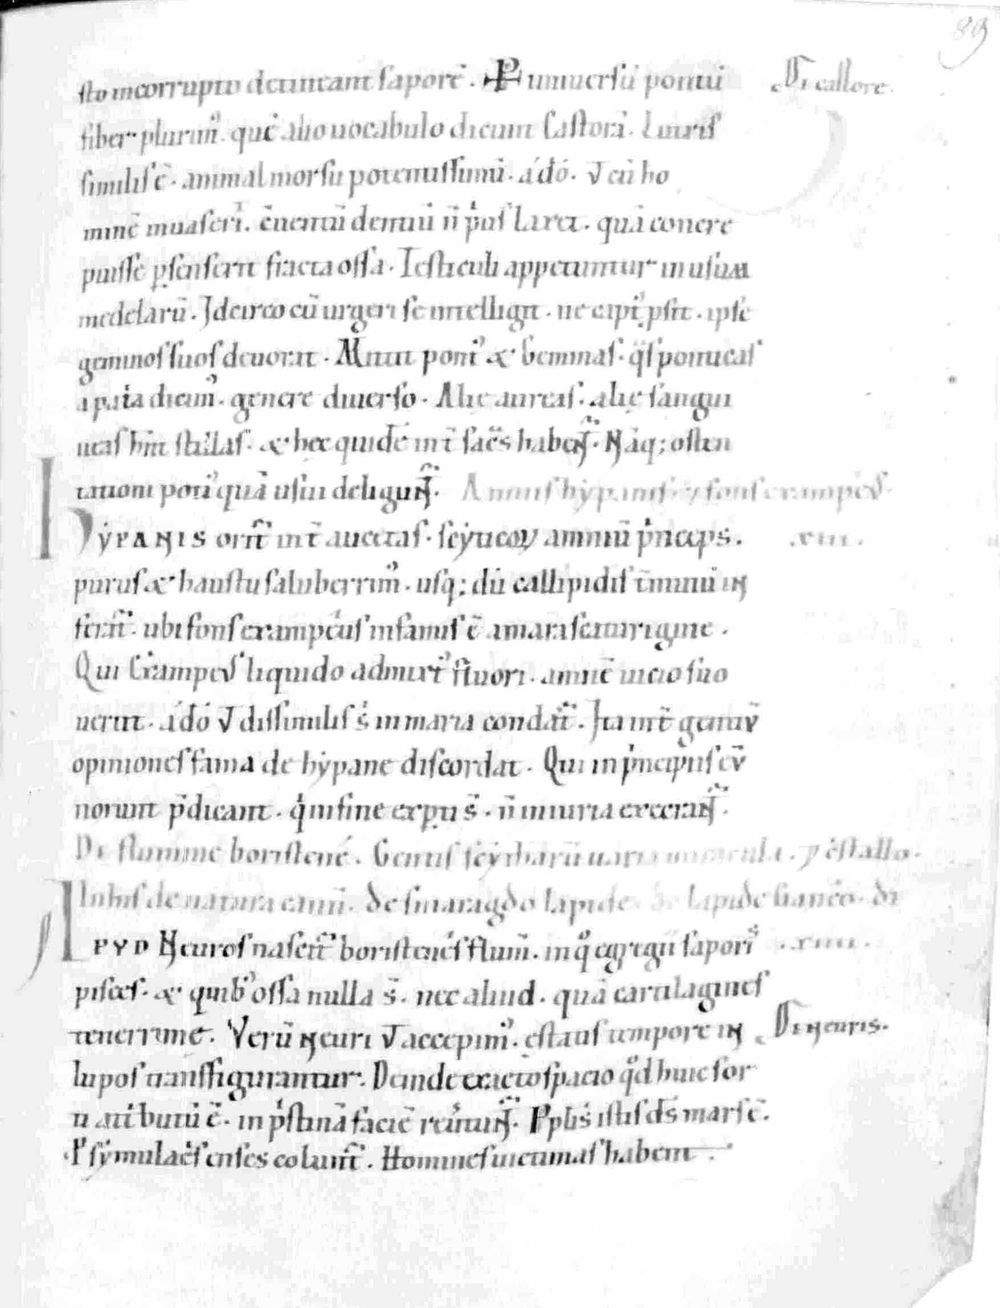 89
sto incorrupto detineant sapore᷒. Per uniuersū pontū De castore.
fiber plurim᷒. quē alio uocabulo dicunt castorē. Lutris
similis ē. animal morsu potentissimū. ádó. v̄ cū ho
minē inuaserit. c̄uentū dentiū n̄ pͥus laxet. quā concre
puisse p̱senserit fracta ossa. Testiculi appetuntur in usum
medelarū. Idcirco cū urgeri se intelligit. ne capt᷒ p̱sit. ipse
geminos suos deuorat. Mittit pont᷒ & gemmas. q̄s ponticas
a pat͛a dicim᷒. genere diuerso. Alie aureas. alię sangui
neas hn̄t stellas. & hęc quidē int̄ sac͛s habent᷒. Nāq; osten
tationi poti᷒ quā usui deligunt᷒. Amnis hypanis. & fons exampeus.
HYPANIS orit᷒ int̄ auchetas. scyticoꝝ amniū pͥnceps. .xiii.
purus & haustu saluberrim᷒. usq; dū callipidis t̄minis in
ferat᷒. ubi fons exampeus infamis ē amara scaturigine.
Qui Exampeus liquido admixt᷒ fluori. amnē uicio suo
uertit. ádó v̄ dissimilis s̱ in maria condat᷒. Ita int̄ gentiū
opiniones fama de hypane discordat. Qui in pͥncipiis eū
norunt p̄dicant. qͥ in fine exp̱ti s̄. n̄ iniuria execrant᷒.
De flumine boristene. Gentis scytharū uaria . p cristallo.
de natura canū. de smaragdo lapide de lapide cianeo. de
APVD Neuros nascit᷒ boristenes flum̄. in qͦ egregii saporis .xiiii.
pisces. & quib᷒ ossa nulla s̄. nec aliud. quā cartilagines
tenerrime. Verū Neuri v̄ accepim᷒. ęstatis tempore in De Neuris.
lupos transfigurantur. Deinde exacto spacio qͦd huic sor
ti attributū ē. in pͥstinā faciē reū̄tunt᷒. Ppl̄is istis ds̄ mars ē.
P symulacͥs enses colunt᷒. Homines uictimas habent.